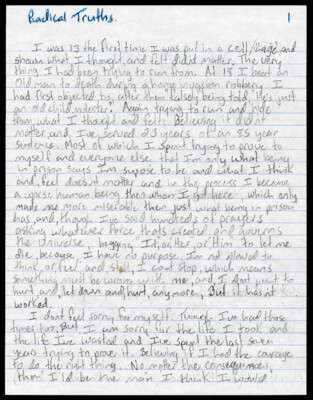 Radical Truths. 1
I was 13 the first time I was put in a cell/cage, and
shown what I thought, and felt didnt matter. The very
thing I had been trying to run from. At 18 I beat an
old man to death during a home invasion robbery I
had first objected to, after then falsely being told, He's just
an old child molester. Again trying to run and hide
from what I thought and felt. Believing it didnt
matter, and I've served 23 years of an 85 year
sentence. Most of which I spent trying to prove to
myself and everyone else that I'm only what being
in prison says I'm supose to be and what I think
and, feel doesnt matter and in the process I became
a worse human being then when I got here, which only
made me more miserable then just what being in prison
has, and, though I've said hundreds of prayers
asking whatever force thats created and governs
the universe, begging It, or Her, or Him to let me
die, because, I have no purpose, I'm not allowed to
think or feel, and still, I cant stop, which means
something must be wrong with me and, I dont want to
hurt, and, let down and, hurt, any more, But it has nt
worked.
I dont feel sorry for myself. Though I've had those
times too. But, I am sorry for the life I took and
the life I've wasted and I've spent the last seven
years trying to prove it. Believing if I had the courage
to do the right thing. No matter the consequences,
then I'd be the man I think I would